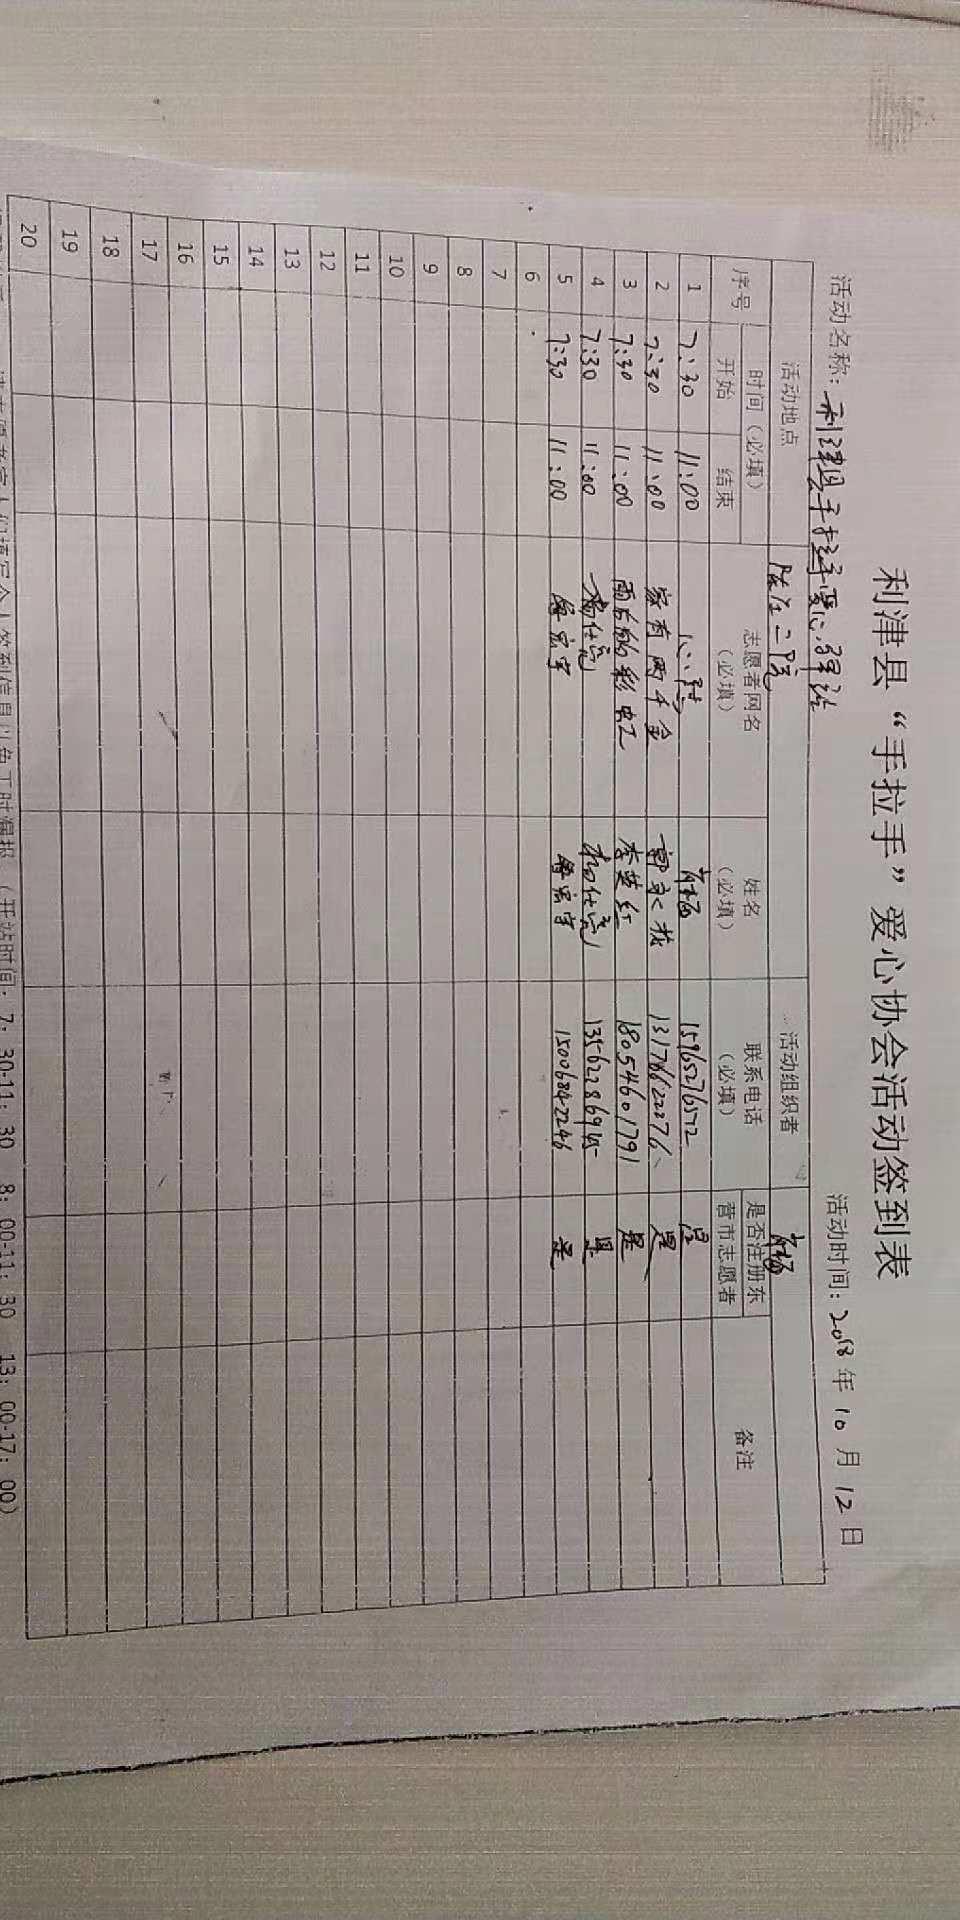 利津县“手拉手”爱心协会活动签到表
活动名称：利津县手拉手爱心驿站 活动时间：2018年10月12日
活动地点 陈庄二院 活动组织者
序号 时间（必填） 志愿者网名（必填） 姓名（必填） 联系电话（必填） 是否注册东营市志愿者 备注
开始 结束
1 7:30 11:00 15965276572 是
2 7:30 11:00 家有两千金 是
3 7:30 11:00 雨后的彩虹 李慧红 18054601791 是
4 7:30 11:00 杨仕亮 杨仕亮 是
5 7:30 11:00 15006842246 是
6
7
8
9
10
11
12
13
14
15
16
17
18
19
20
请志愿者家人们填写个人签到信息以免工时漏报（开站时间：7：30-11：30 8：00-11：30 13：00-17：00）